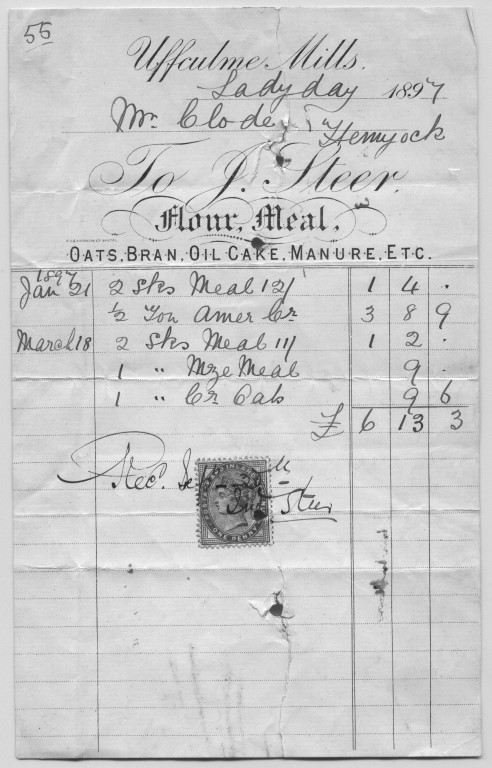 55
Uffculme Mills.
Ladyday 1897
Mr. Clode
Hemyock
To J. Steer.
Flour, Meal,
OATS, BRAN, OIL CAKE, MANURE, ETC.
1897
Jan 21 2 Sks Meal 12/ 1 4 .
½ Ton Amer Cr 3 8 9
March 18 2 Sks Meal 11/ 1 2 .
1 " Mze Meal 9 .
1 " Cr Oats 9 6
£ 6 13 3
Recd.
Steer
ONE PENNY